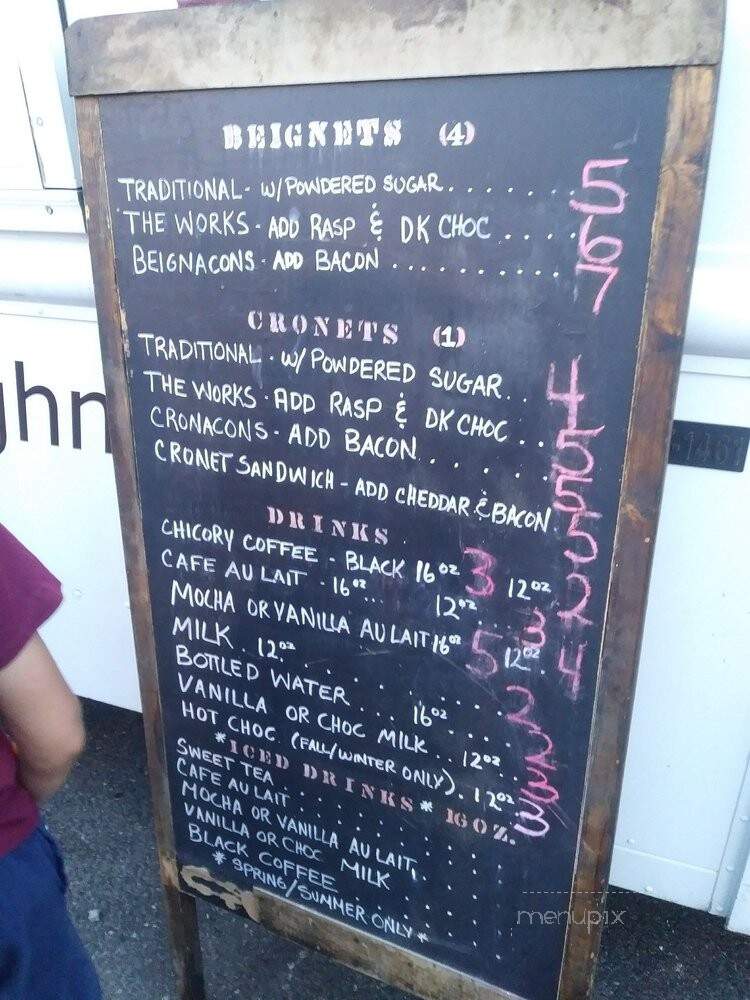 BEIGNETS (4)
TRADITIONAL - W/POWDERED SUGAR....... 5
THE WORKS - ADD RASP & DK CHOC .... 6
BEIGNACONS - ADD BACON .......... 7
CRONETS (1)
TRADITIONAL - W/POWDERED SUGAR.. 4
THE WORKS - ADD RASP & DK CHOC .. 5
CRONACONS - ADD BACON..... 5
CRONET SANDWICH - ADD CHEDDAR & BACON. 5
DRINKS
CHICORY COFFEE - BLACK 16oz 3 12oz 2
CAFE AU LAIT - 16oz... 12oz.... 3
MOCHA OR VANILLA AU LAIT 16oz 5 12oz. 4
MILK . 12oz......... 2
BOTTLED WATER ... 16oz.... 2
VANILLA OR CHOC MILK .. 12oz.. 3
HOT CHOC (FALL/WINTER ONLY). 12oz. 3
*ICED DRINKS* 16 OZ.
SWEET TEA
CAFE AU LAIT
MOCHA OR VANILLA AU LAIT
VANILLA OR CHOC MILK
BLACK COFFEE
* SPRING/SUMMER ONLY *
ghn
-1461
menupix